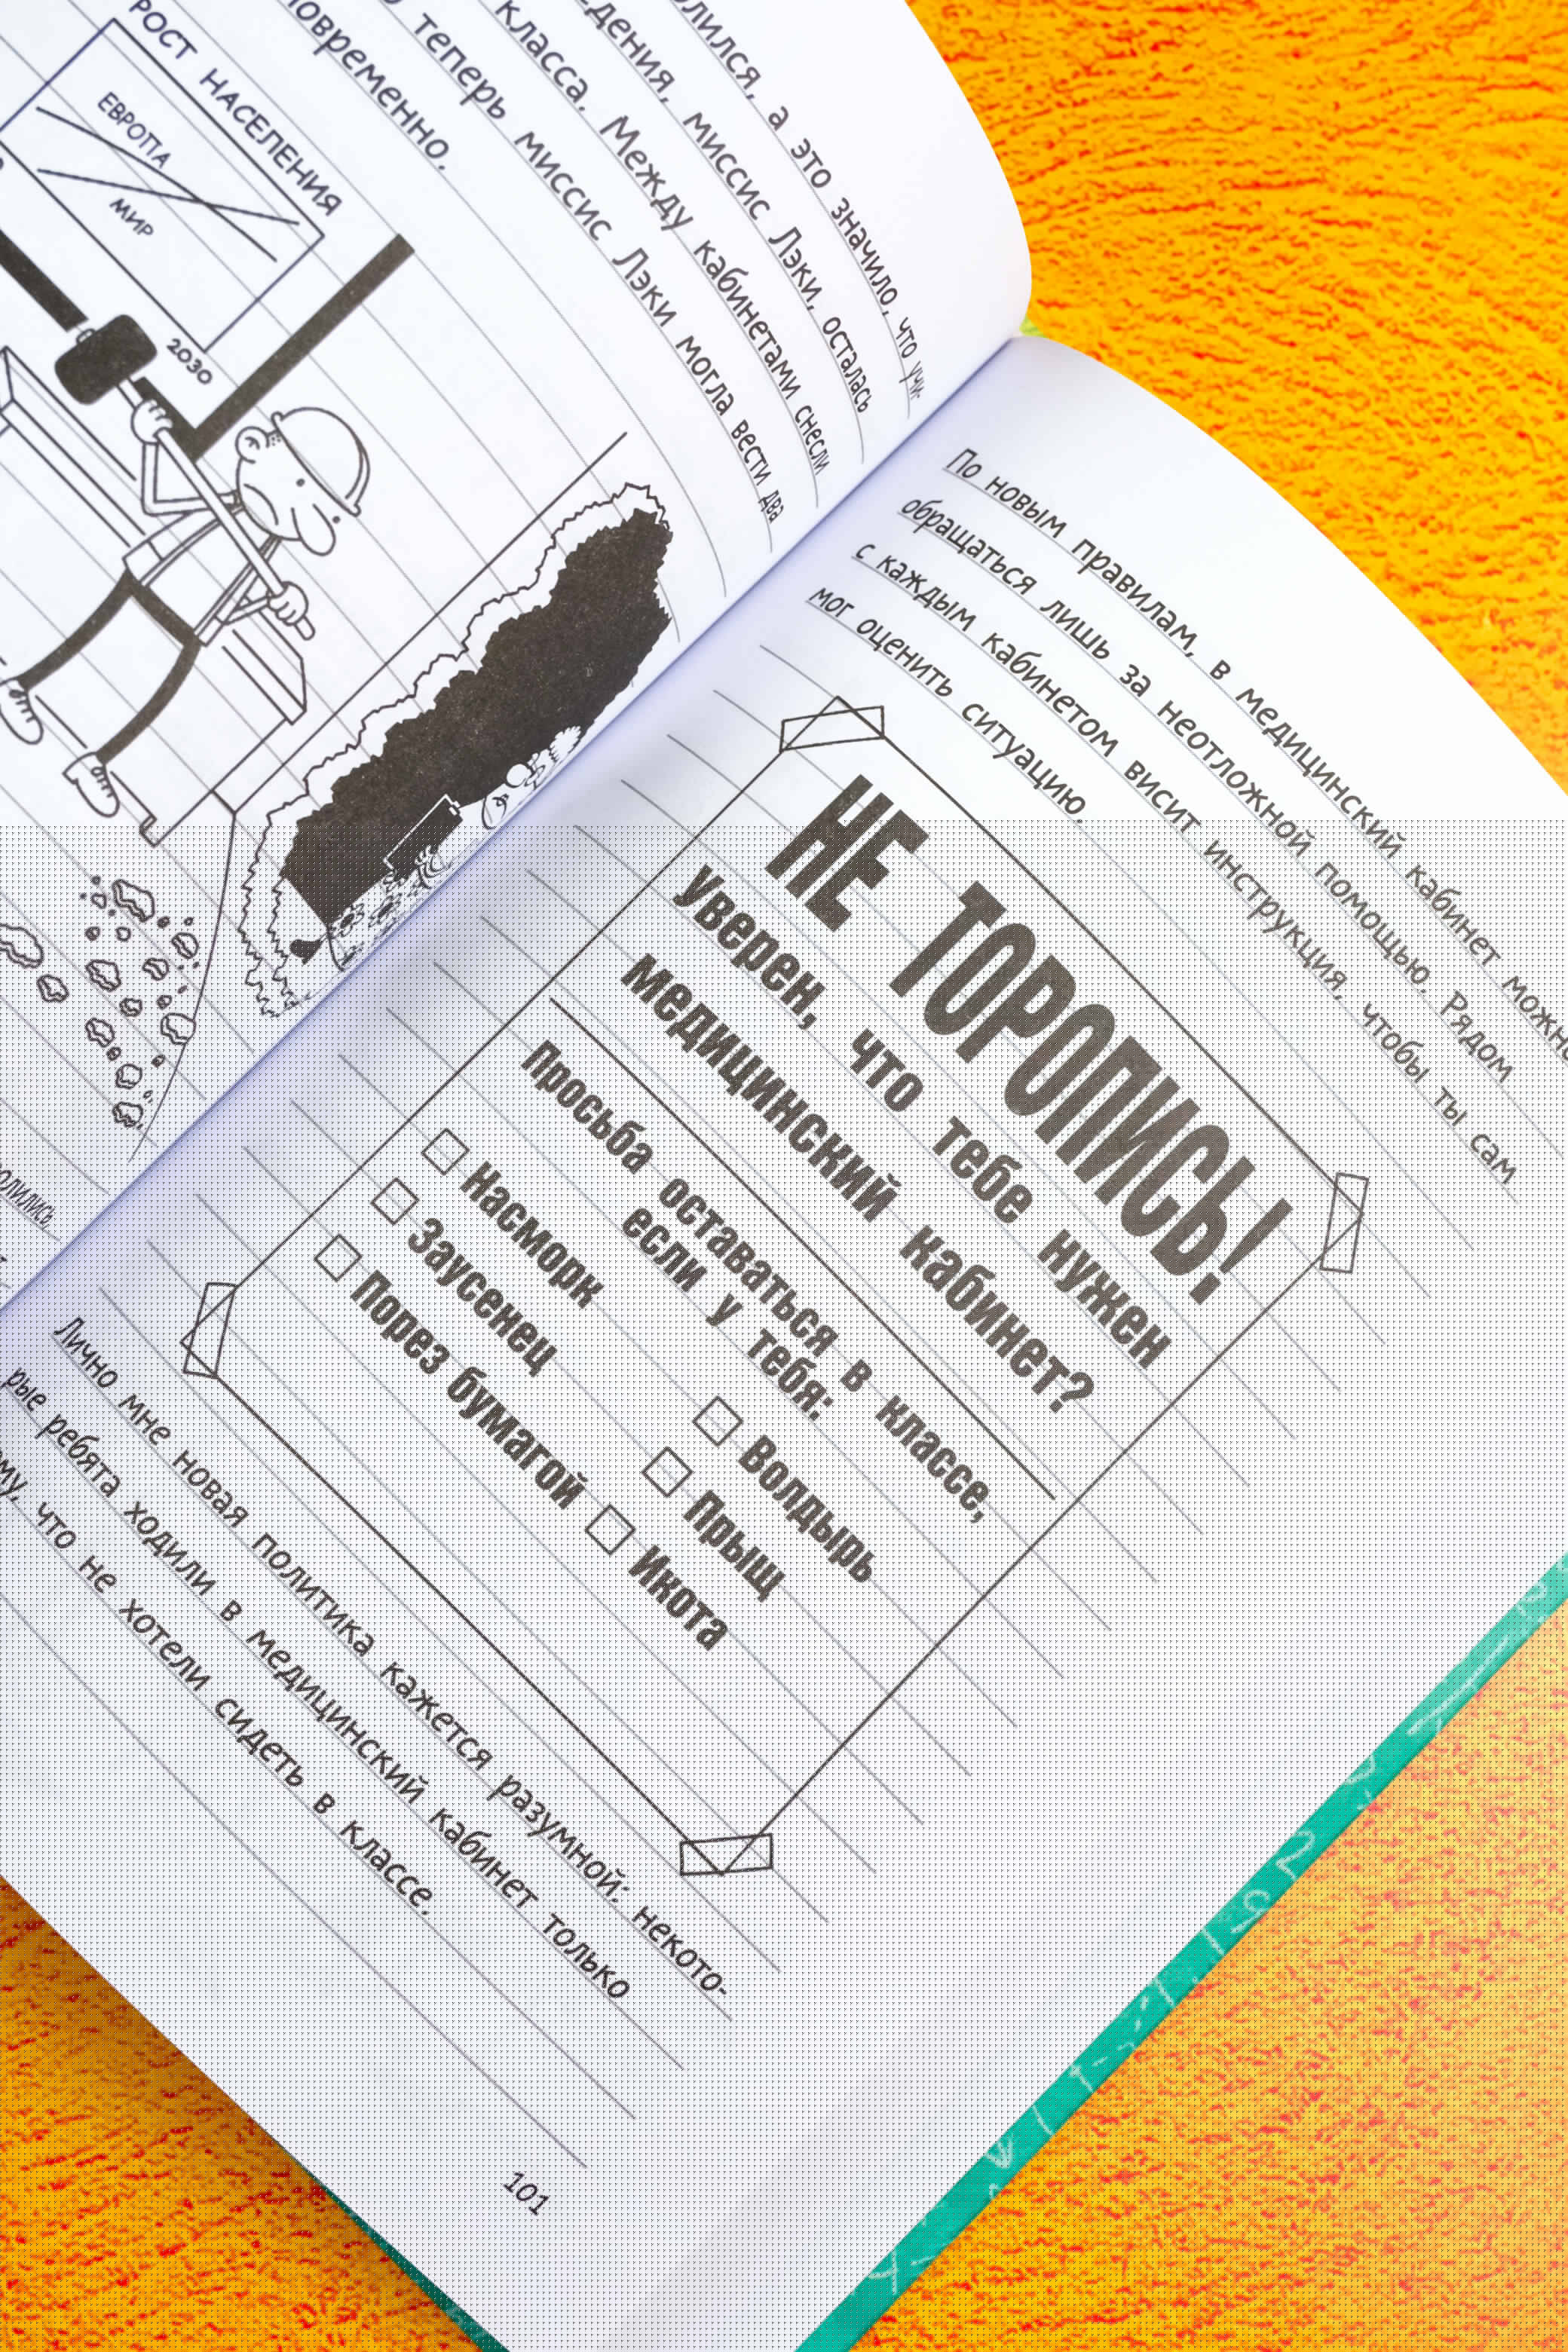 а это значило, что учи-
миссис Лэки, осталась
класса. Между кабинетами снесли
теперь миссис Лэки могла вести два
РОСТ НАСЕЛЕНИЯ
ЕВРОПА
МИР
2030
По новым правилам, в медицинский кабинет
обращаться лишь за неотложной помощью. Рядом
с каждым кабинетом висит инструкция, чтобы ты сам
мог оценить ситуацию.
НЕ ТОРОПИСЬ!
Уверен, что тебе нужен
медицинский кабинет?
Просьба оставаться в классе,
если у тебя:
Насморк Волдырь
Заусенец Прыщ
Порез бумагой Икота
Лично мне новая политика кажется разумной: некото-
рые ребята ходили в медицинский кабинет только
что не хотели сидеть в классе.
101